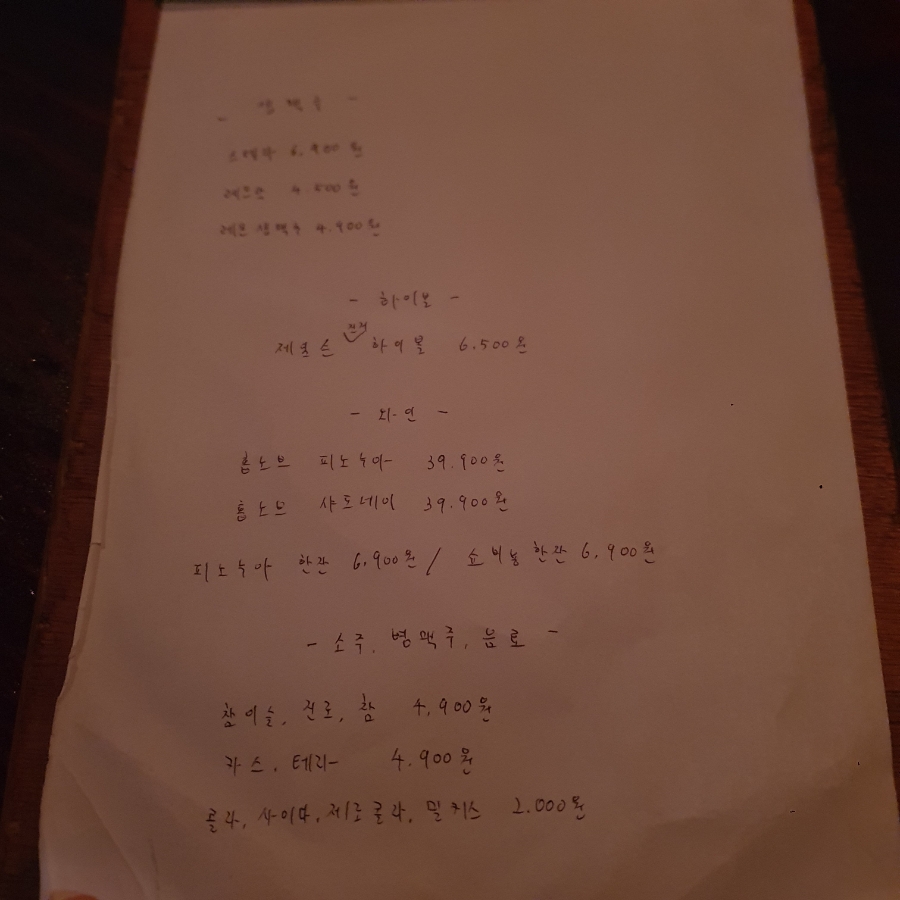 - 생맥주 -
스텔라 6.900원
레드락 4.500원
레드 생맥주 4.900원
- 하이볼 -
제임슨 하이볼 6.500원
- 와인 -
홈노브 피노누아 39.900원
홈노브 샤도네이 39.900원
피노누아 한잔 6.900원 / 쇼비뇽 한잔 6.900원
- 소주, 병맥주, 음료 -
참이슬, 진로, 참 4.900원
카스, 테라 4.900원
콜라, 사이다, 제로콜라, 밀키스 2.000원